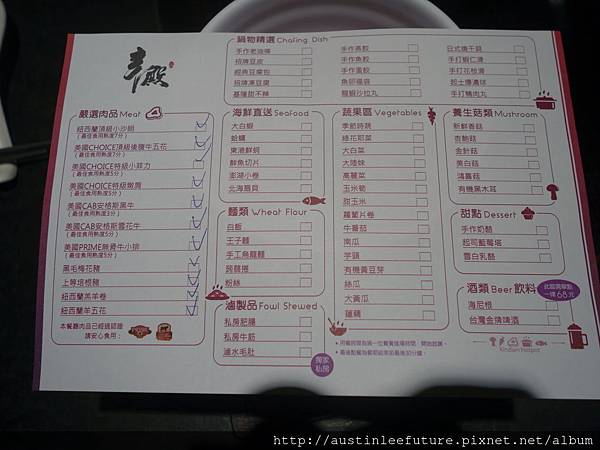 鍋物精選 Chafing Dish
手作老油條
招牌豆皮
經典豆腐包
招牌凍豆腐
基隆甜不辣
手作燕餃
手作魚餃
手作蛋餃
魚卵福袋
龍蝦沙拉丸
日式燒干貝
手打蝦仁漿
手打花枝漿
起士爆漿球
手打鴨肉丸
嚴選肉品 Meat
紐西蘭頂級小沙朗
(最佳食用熟度7分)
美國CHOICE頂級後腹牛五花
(最佳食用熟度7分)
美國CHOICE特級小菲力
(最佳食用熟度5分)
美國CHOICE特級嫩肩
(最佳食用熟度5分)
美國CAB安格斯黑牛
(最佳食用熟度3分)
美國CAB安格斯雪花牛
(最佳食用熟度5分)
美國PRIME無骨牛小排
(最佳食用熟度5分)
黑毛梅花豬
上等培根豬
紐西蘭羔羊卷
紐西蘭羊五花
本餐廳肉品已經過認證
請安心食用:
海鮮直送 Seafood
大白蝦
蛤蠣
東港鮮蚵
鮮魚切片
澎湖小卷
北海扇貝
麵類 Wheat Flour
白飯
王子麵
手工烏龍麵
蒟蒻捲
粉絲
滷製品 Fowl Stewed
私房肥腸
私房牛筋
滷水毛肚
獨家
私房
蔬果區 Vegetables
季節時蔬
綠花耶菜
大白菜
大陸妹
高麗菜
玉米筍
甜玉米
蘿蔔片卷
牛番茄
南瓜
芋頭
有機黃豆芽
絲瓜
大黃瓜
蓮藕
養生菇類 Mushroom
新鮮香菇
杏鮑菇
金針菇
美白菇
鴻喜菇
有機黑木耳
甜點 Dessert
手作奶酪
起司藍莓塔
雪白乳酪
酒類 Beer 飲料
此區需單點
一律68元
海尼根
台灣金牌啤酒
Kindian Hotpot
http://austinleefuture.pixnet.net/album